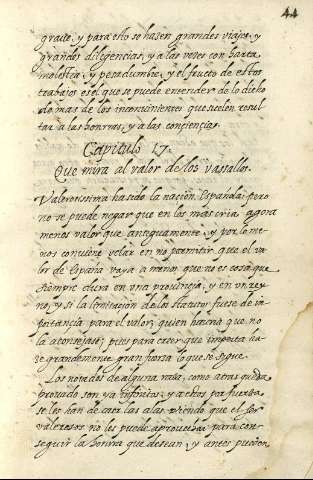 44
grado, y para esto se hazen grandes viajes, y
grandes diligencias, y a las veces con harta
molestia, y pesadumbre, y el fructo de estos
trabajos es el que se puede entender de lo dicho
de mas de los inconvinientes que suelen resul
tar a las honrras, y a las conciencias.
Capitulo 17.
Que mira al valor de los vassallos.
Valerosissima ha sido la nacion Española: pero
no se puede negar que en los mas cria agora
menos valor que antiguamente, y por lo me
nos conviene velar en no permitir que el va
lor de España vaya a menor que no es cosa que
siempre dura en una provincia, y en un rey
no, y si la limitacion de los statutos fuese de im
portancia para el valor; quien havria que no
la aconsejase; pues para creer que importa ha
ze grandemente gran fuersa lo que se sigue.
Los notados de alguna raza, como atras queda
provado son ya infinitos; y a estos por fuerza
se les han de caer las alas viendo que el ser
valerosos no les puede aprovechar para con
seguir la honrra que desean, y antes pueden